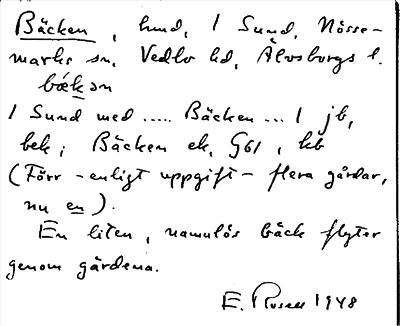 Bäcken, hmd, 1 Sund, Nösse-
marks sn, Vedbo hd, Älvsborgs l.
bœkən
1 Sund med ..... Bäcken ... 1 jb,
bek; Bäcken ek, G61, kb
(Förr - enligt uppgift - flera gårdar,
nu en).
En liten, namnlös bäck flyter
genom gårdena.
E. Rosell 1948